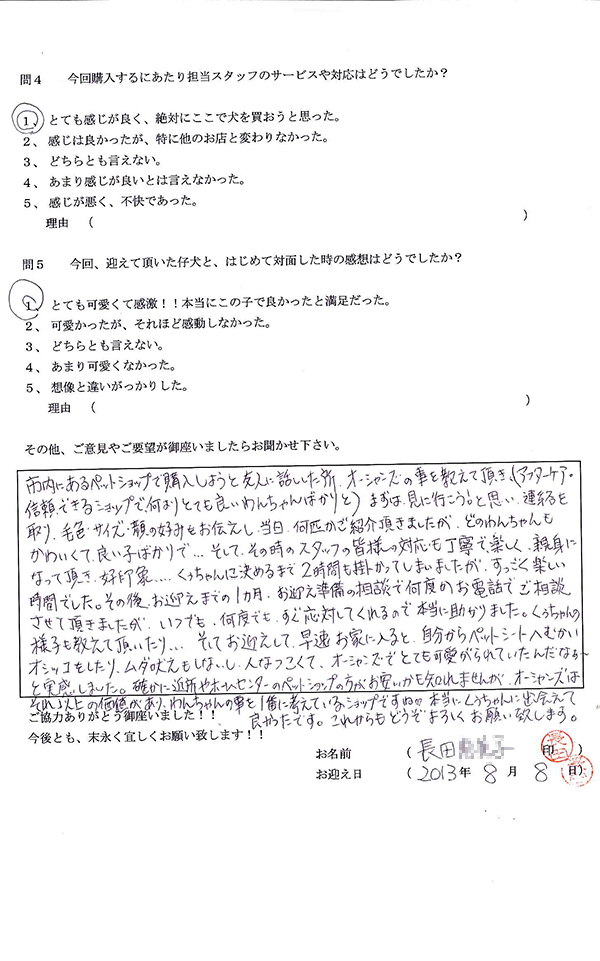 問4　今回購入するにあたり担当スタッフのサービスや対応はどうでしたか？
1、とても感じが良く、絶対にここで犬を買おうと思った。
2、感じは良かったが、特に他のお店と変わりなかった。
3、どちらとも言えない。
4、あまり感じが良いとは言えなかった。
5、感じが悪く、不快であった。
理由　（　　　）
問5　今回、迎えて頂いた仔犬と、はじめて対面した時の感想はどうでしたか？
1、とても可愛くて感激！！本当にこの子で良かったと満足だった。
2、可愛かったが、それほど感動しなかった。
3、どちらとも言えない。
4、あまり可愛くなかった。
5、想像と違いがっかりした。
理由　（　　　）
その他、ご意見やご要望が御座いましたらお聞かせ下さい。
市内にあるペットショップで購入しようと友人に話した所、オーシャンズの事を教えて頂き、(アフターケア・
信頼できるショップで何よりとても良いわんちゃんばかりと) まずは、見に行こう!と思い、連絡を
取り、毛色・サイズ・顔の好みをお伝えし、当日、何匹かご紹介頂きましたが、どのわんちゃんも
かわいくて、良い子ばかりで… そして、その時のスタッフの皆様の対応も丁寧で、楽しく、親身に
なって頂き、好印象…. くぅちゃんに決めるまで2時間も掛かってしまいましたが、すっごく楽しい
時間でした。その後、お迎えまでの1カ月、お迎え準備の相談で何度かお電話でご相談
させて頂きましたが、いつでも、何度でも、すぐ応対してくれるので本当に助かりました。くぅちゃんの
様子も教えて頂いたり… そしてお迎えして、早速お家に入ると、自分からペットシートへむかい
オシッコをしたり、ムダ吠えもしないし、人なつこくて、オーシャンズでとても可愛がられていたんだなぁ〜
と実感しました。確かに近所やホームセンターのペットショップの方がお安いかも知れませんが、オーシャンズは
それ以上の価値があり、わんちゃんの事を1番に考えているショップですね♡本当にくぅちゃんに出会えて
良かったです。これからもどうぞよろしくお願い致します。
ご協力ありがとう御座いました！！
今後とも、末永く宜しくお願い致します！！
お名前　（長田　子　印）
お迎え日　（2013年 8月 8日）